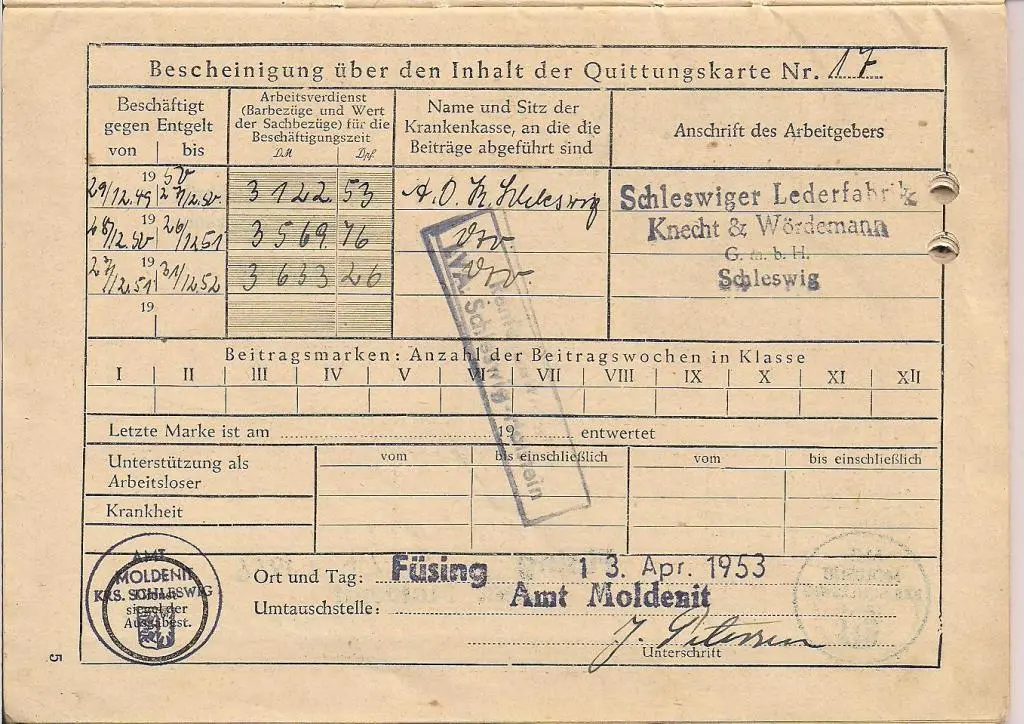 Bescheinigung über den Inhalt der Quittungskarte Nr. 17
Beschäftigt gegen Entgelt
von | bis
Arbeitsverdienst
(Barbezüge und Wert
der Sachbezüge) für die
Beschäftigungszeit
DM Dpf.
Name und Sitz der
Krankenkasse, an die die
Beiträge abgeführt sind
Anschrift des Arbeitgebers
1950
29/12.49 27/12.50 3122 53 A.O.K. Schleswig
19
28/12.50 26/12.51 3569.76
19
27/12.51 31/12.52 3633 26
19
Schleswiger Lederfabrik
Knecht & Wördemann
G. m. b. H.
Schleswig
LVA. Schleswig-Holstein
Beitragsmarken: Anzahl der Beitragswochen in Klasse
I | II | III | IV | V | VI | VII | VIII | IX | X | XI | XII
Letzte Marke ist am 19 entwertet
Unterstützung als
Arbeitsloser
vom bis einschließlich vom bis einschließlich
Krankheit
AMT
MOLDENIT
KRS. SCHLESWIG
siegel der
Ausgabest.
Ort und Tag: Füsing 13. Apr. 1953
Umtauschstelle: Amt Moldenit
J. Petersen
Unterschrift
5